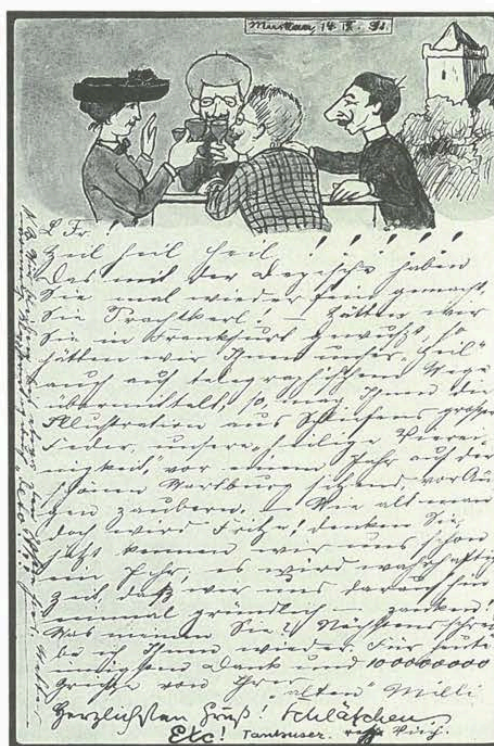 14. IX. 91.
L. Fr.!
Heil heil heil !!!!!!
Das mit der Depesche haben
Sie mal wieder fein gemacht,
Sie Prachtkerl! — Hätten wir
Sie in Frankfurt gewußt, so
hätten wir Ihnen unser „Heil“
auch auf telegraph'schem Wege
übermittelt, so mag Ihnen die
Illustration aus Schleifens großer
Feder, unsere „heilige Vierei-
nigkeit,“ vor einem Jahr auf der
schönen Wartburg sitzend, vor Au-
gen zaubern. — Wie alt man
doch wird Fritze! denken Sie,
jetzt kennen wir uns schon
ein Jahr, es wird wahrhaftig
Zeit, daß wir uns darauf hin
einmal gründlich — zanken!
Was meinen Sie? Nächstens schrei-
be ich Ihnen wieder. Für heute
innigsten Dank und 100000000
Grüße von Ihrer
„alten“ Milli
Herzlichsten Gruß! Schläfchen
Etc!